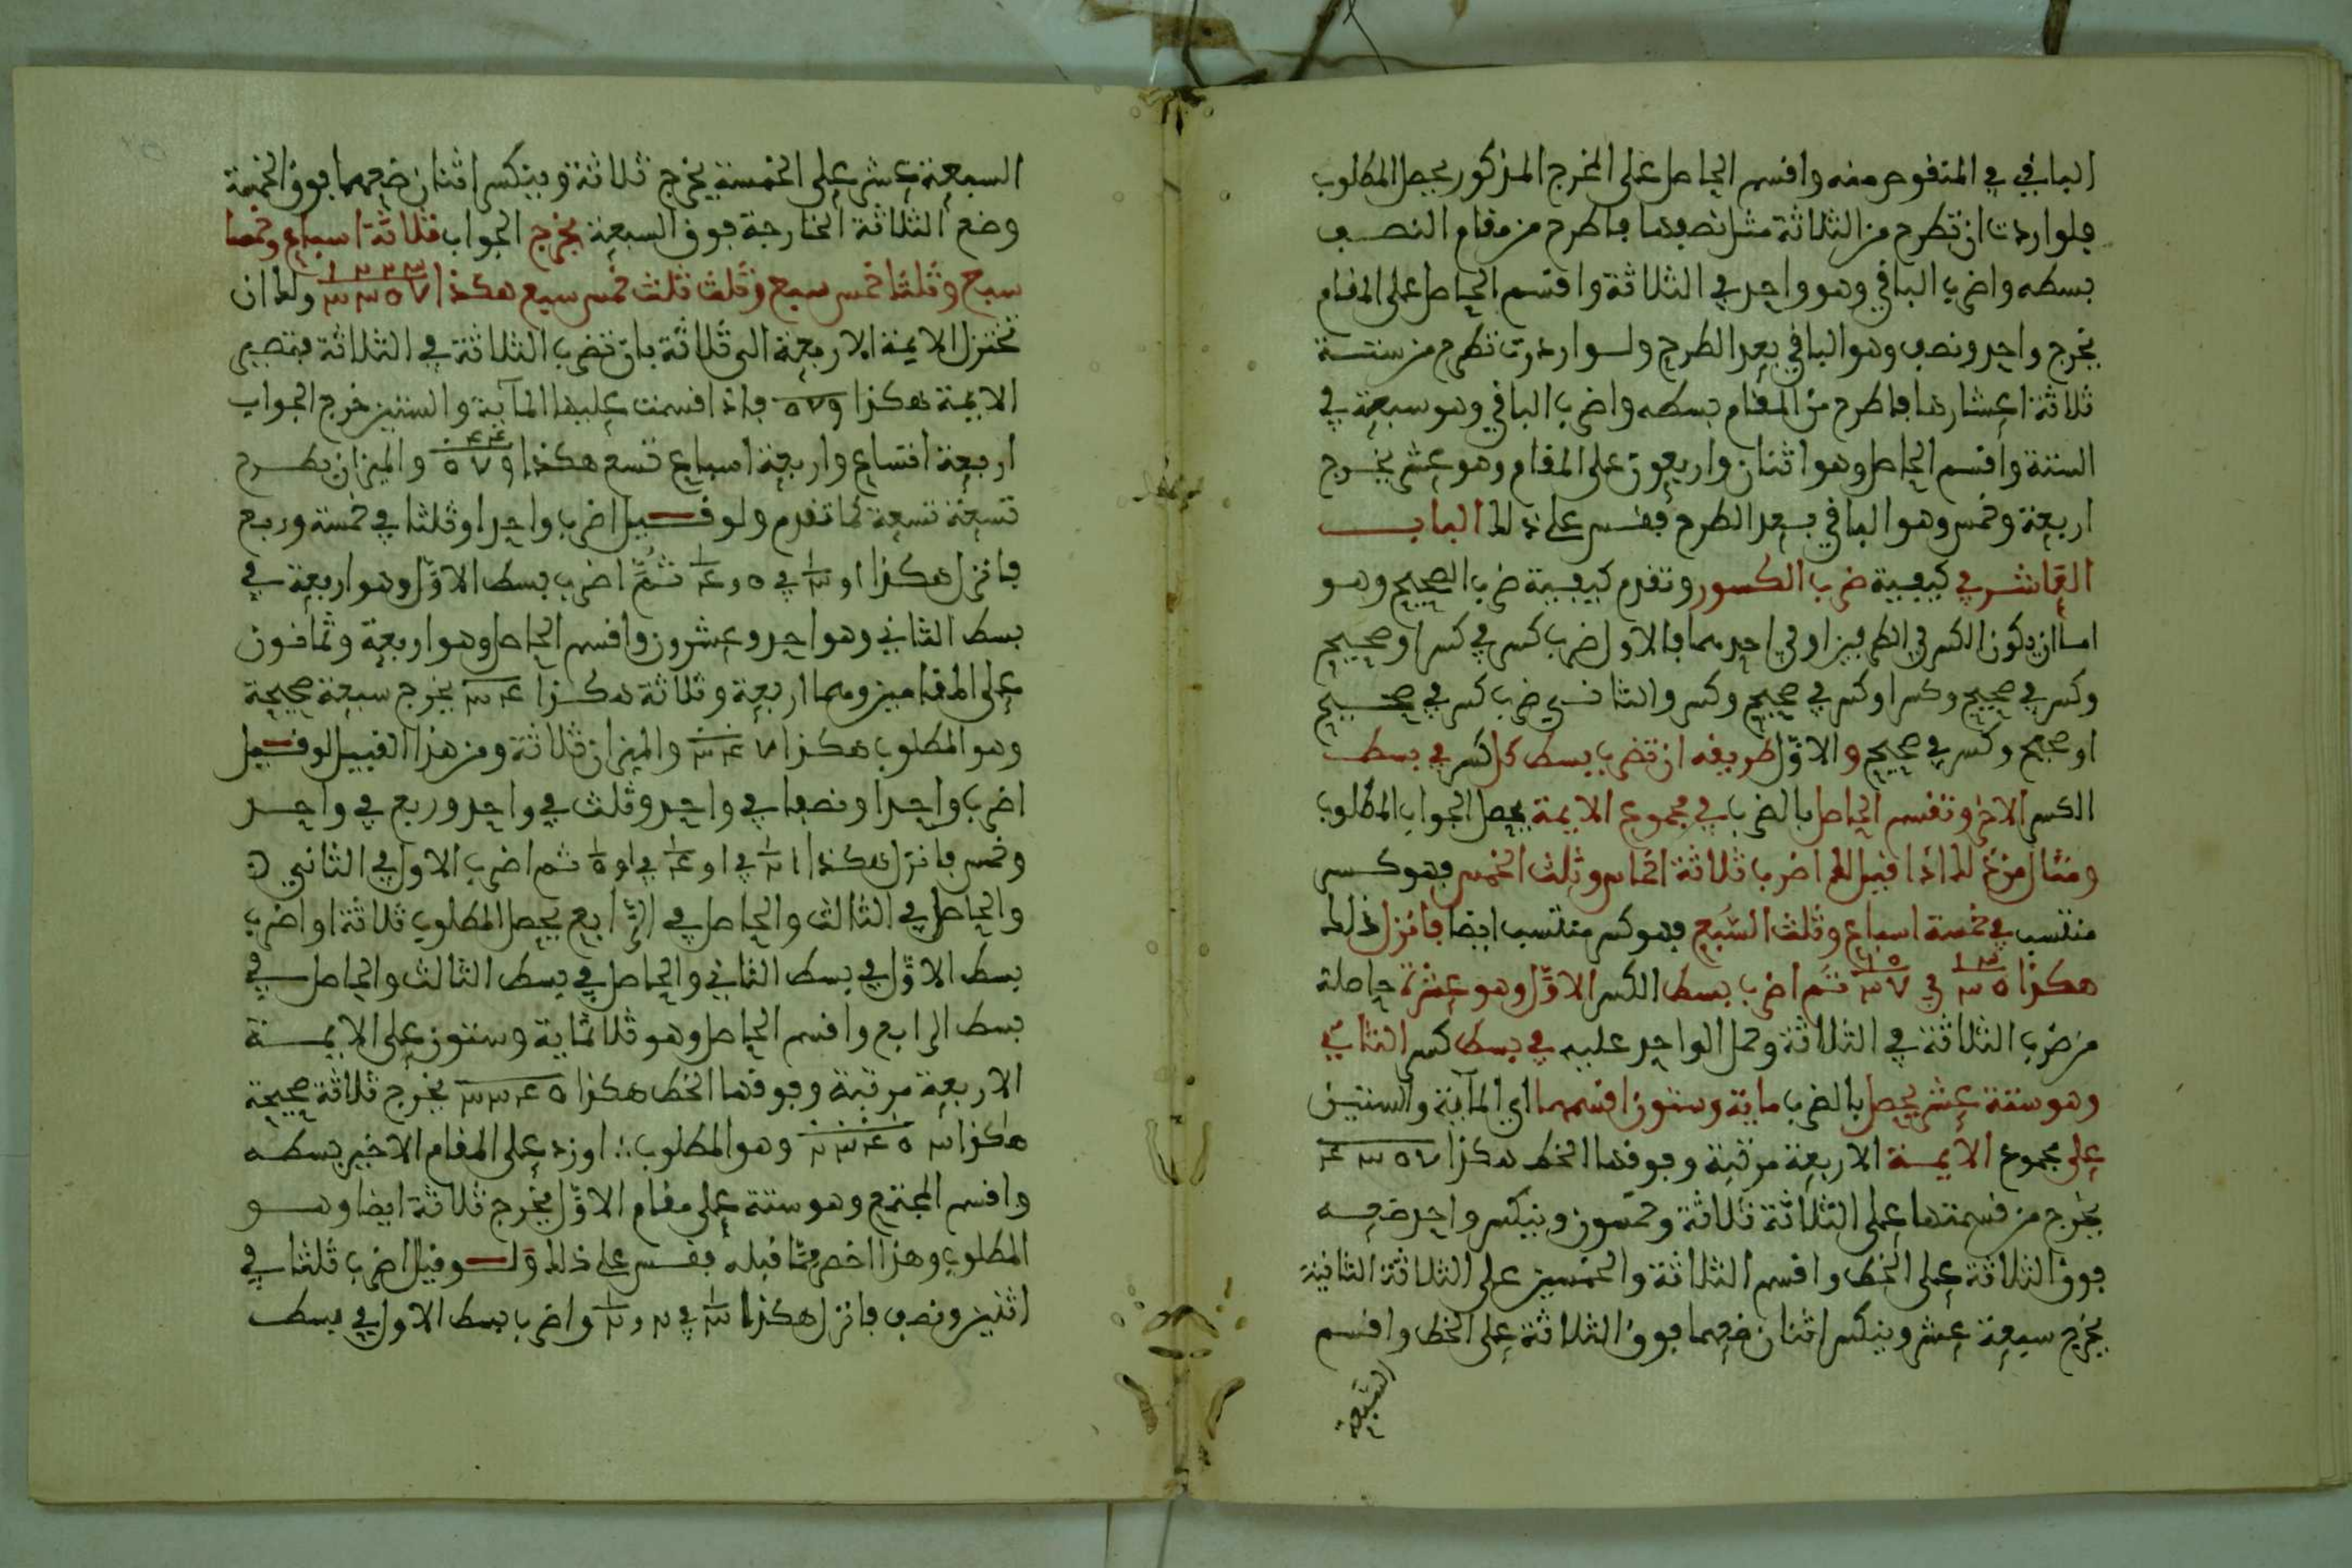 الباقي في المنقوص منه واقسم الحاصل على المخرج المذكور يحصل المطلوب
فلو اردت ان تطرح من الثلاثة مثل نصفها فاطرح من مقام النصف
بسطه واضرب الباقي وهو واحد في الثلاثة واقسم الحاصل على المقام
يخرج واحد ونصف وهو الباقي بعد الطرح ولو اردت تطرح من ستة
ثلاثة اعشارها فاطرح من المقام بسطه واضرب الباقي وهو سبعة في
الستة واقسم الحاصل وهو اثنان واربعون على المقام وهو عشر يخرج
اربعة وخمس وهو الباقي بعد الطرح فقس على ذلك الباب
العاشر في كيفية ضرب الكسور وتقدم كيفية ضرب الصحيح وهو
اما ان يكون الكسر في الطرفين او في احدهما فالاول ضرب كسر في كسر او صحيح
وكسر في صحيح وكسر او كسر في صحيح وكسر والثاني ضرب كسر في صحيح
او صحيح وكسر في صحيح والاوّل طريقه ان تضرب بسط كل كسر في بسط
الكسر الاخر وتقسم الحاصل بالضرب في مجموع الايمة يحصل الجواب المطلوب
ومثال من ذلك اذا قيل لك اضرب ثلاثة اخماس وثلث الخمس فهو كسر
منتسب في خمسة اسباع وثلث السُّبع فهو كسر منتسب ايضا فانزل ذلك
هكذا ١ ٣ ٣ ٥ في ١ ٥ ٣ ٧ ثم اضرب بسط الكسر الاوّل وهو عشرة حاصلة
من ضرب الثلاثة في الثلاثة وحمل الواحد عليه في بسط كسر الثاني
وهو ستة عشر يحصل بالضرب ماية وستون اقسمها اي الماية والستين
على مجموع الايمة الاربعة مرتبة وفوقها الخط هكذا
يخرج من قسمتها على الثلاثة ثلاثة وخمسون وينكسر واحد ضعه
فوق الثلاثة على الخط واقسم الثلاثة والخمسين على الثلاثة الثانية
يخرج سبعة عشر وينكسر اثنان ضعهما فوق الثلاثة على الخط واقسم
السبعة
السبعة عشر على الخمسة يخرج ثلاثة وينكسر اثنان ضعهما فوق الخمسة
وضع الثلاثة الخارجة فوق السبعة يخرج الجواب ثلاثة اسباع وخمسا
سبع وثلثا خمس سبع وثلث ثلث خمس سبع هكذا ولك ان
تختزل الايمة الاربعة الى ثلاثة بان تضرب الثلاثة في الثلاثة فتصير
الايمة هكذا فاذا قسمت عليها الماية والستين خرج الجواب
اربعة اتساع واربعة اسباع تسع هكذا والميزان بطرح
تسعة تسعة كما تقدم ولو قيل اضرب واحدا وثلثا في خمسة وربع
فانزل هكذا ثمَّ اضرب بسط الاوّل وهو اربعة في
بسط الثاني وهو احد وعشرون واقسم الحاصل وهو اربعة وثمانون
على المقامين وهما اربعة وثلاثة هكذا يخرج سبعة صحيحة
وهو المطلوب هكذا والميزان ثلاثة ومن هذا القبيل لو قيل
اضرب واحدا ونصفا في واحد وثلث في واحد وربع في واحد
وخمس فانزل هكذا ثم اضرب الاول في الثاني
والحاصل في الثالث والحاصل في الرابع يحصل المطلوب ثلاثة او اضرب
بسط الاوّل في بسط الثاني والحاصل في بسط الثالث والحاصل في
بسط الرابع واقسم الحاصل وهو ثلاثماية وستون على الايمة
الاربعة مرتبة وفوقها الخط هكذا يخرج ثلاثة صحيحة
هكذا وهو المطلوب او زد على المقام الاخير بسطه
واقسم المجتمع وهو ستة على مقام الاوّل يخرج ثلاثة ايضا وهو
المطلوب وهذا اخصر مما قبله فقس على ذلك ولو قيل اضرب ثلثا في
اثنين ونصف فانزل هكذا واضرب بسط الاول في بسط